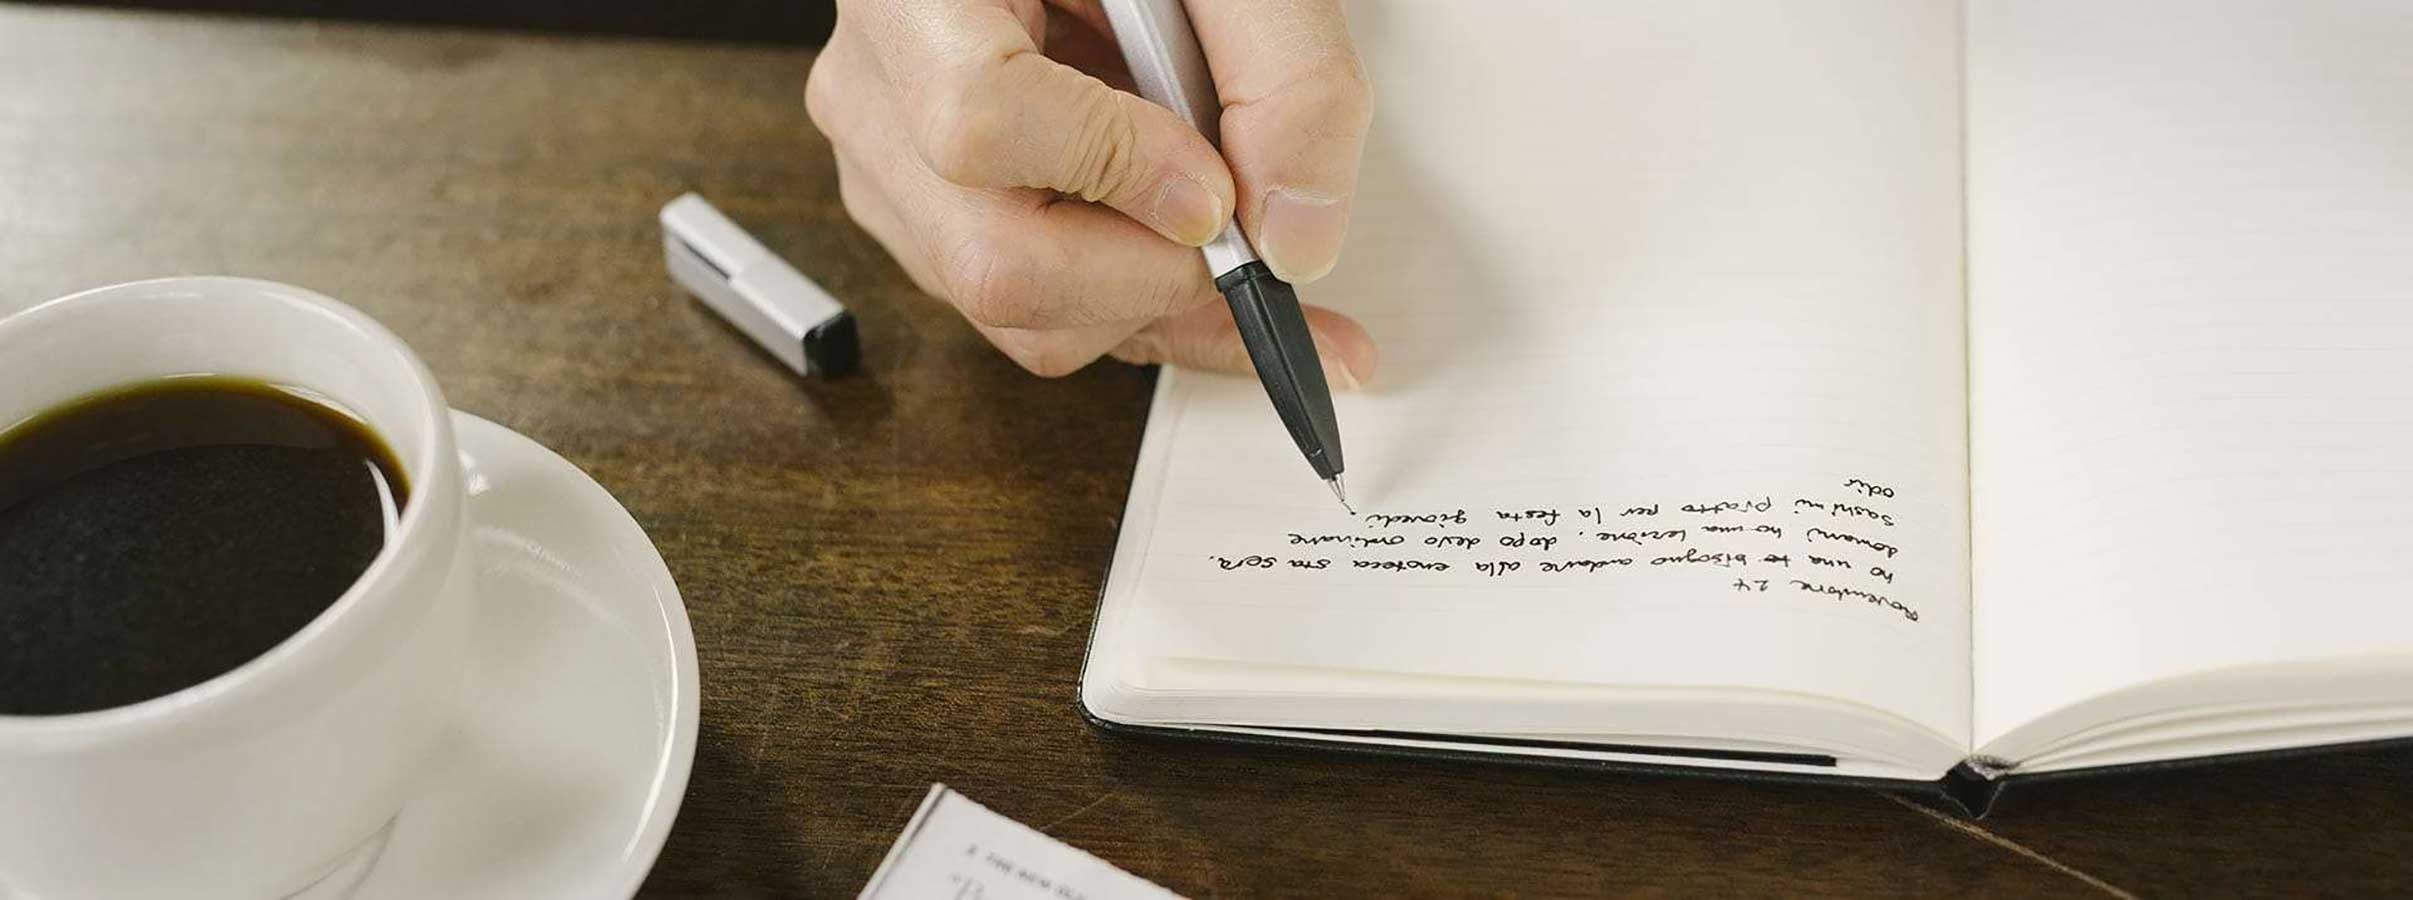 Novembre 24
ho una to bisogno andare alla enoteca sta sera.
domani ho una lezione. dopo devo ordinare
Sashimi piatto per la festa giovedi.